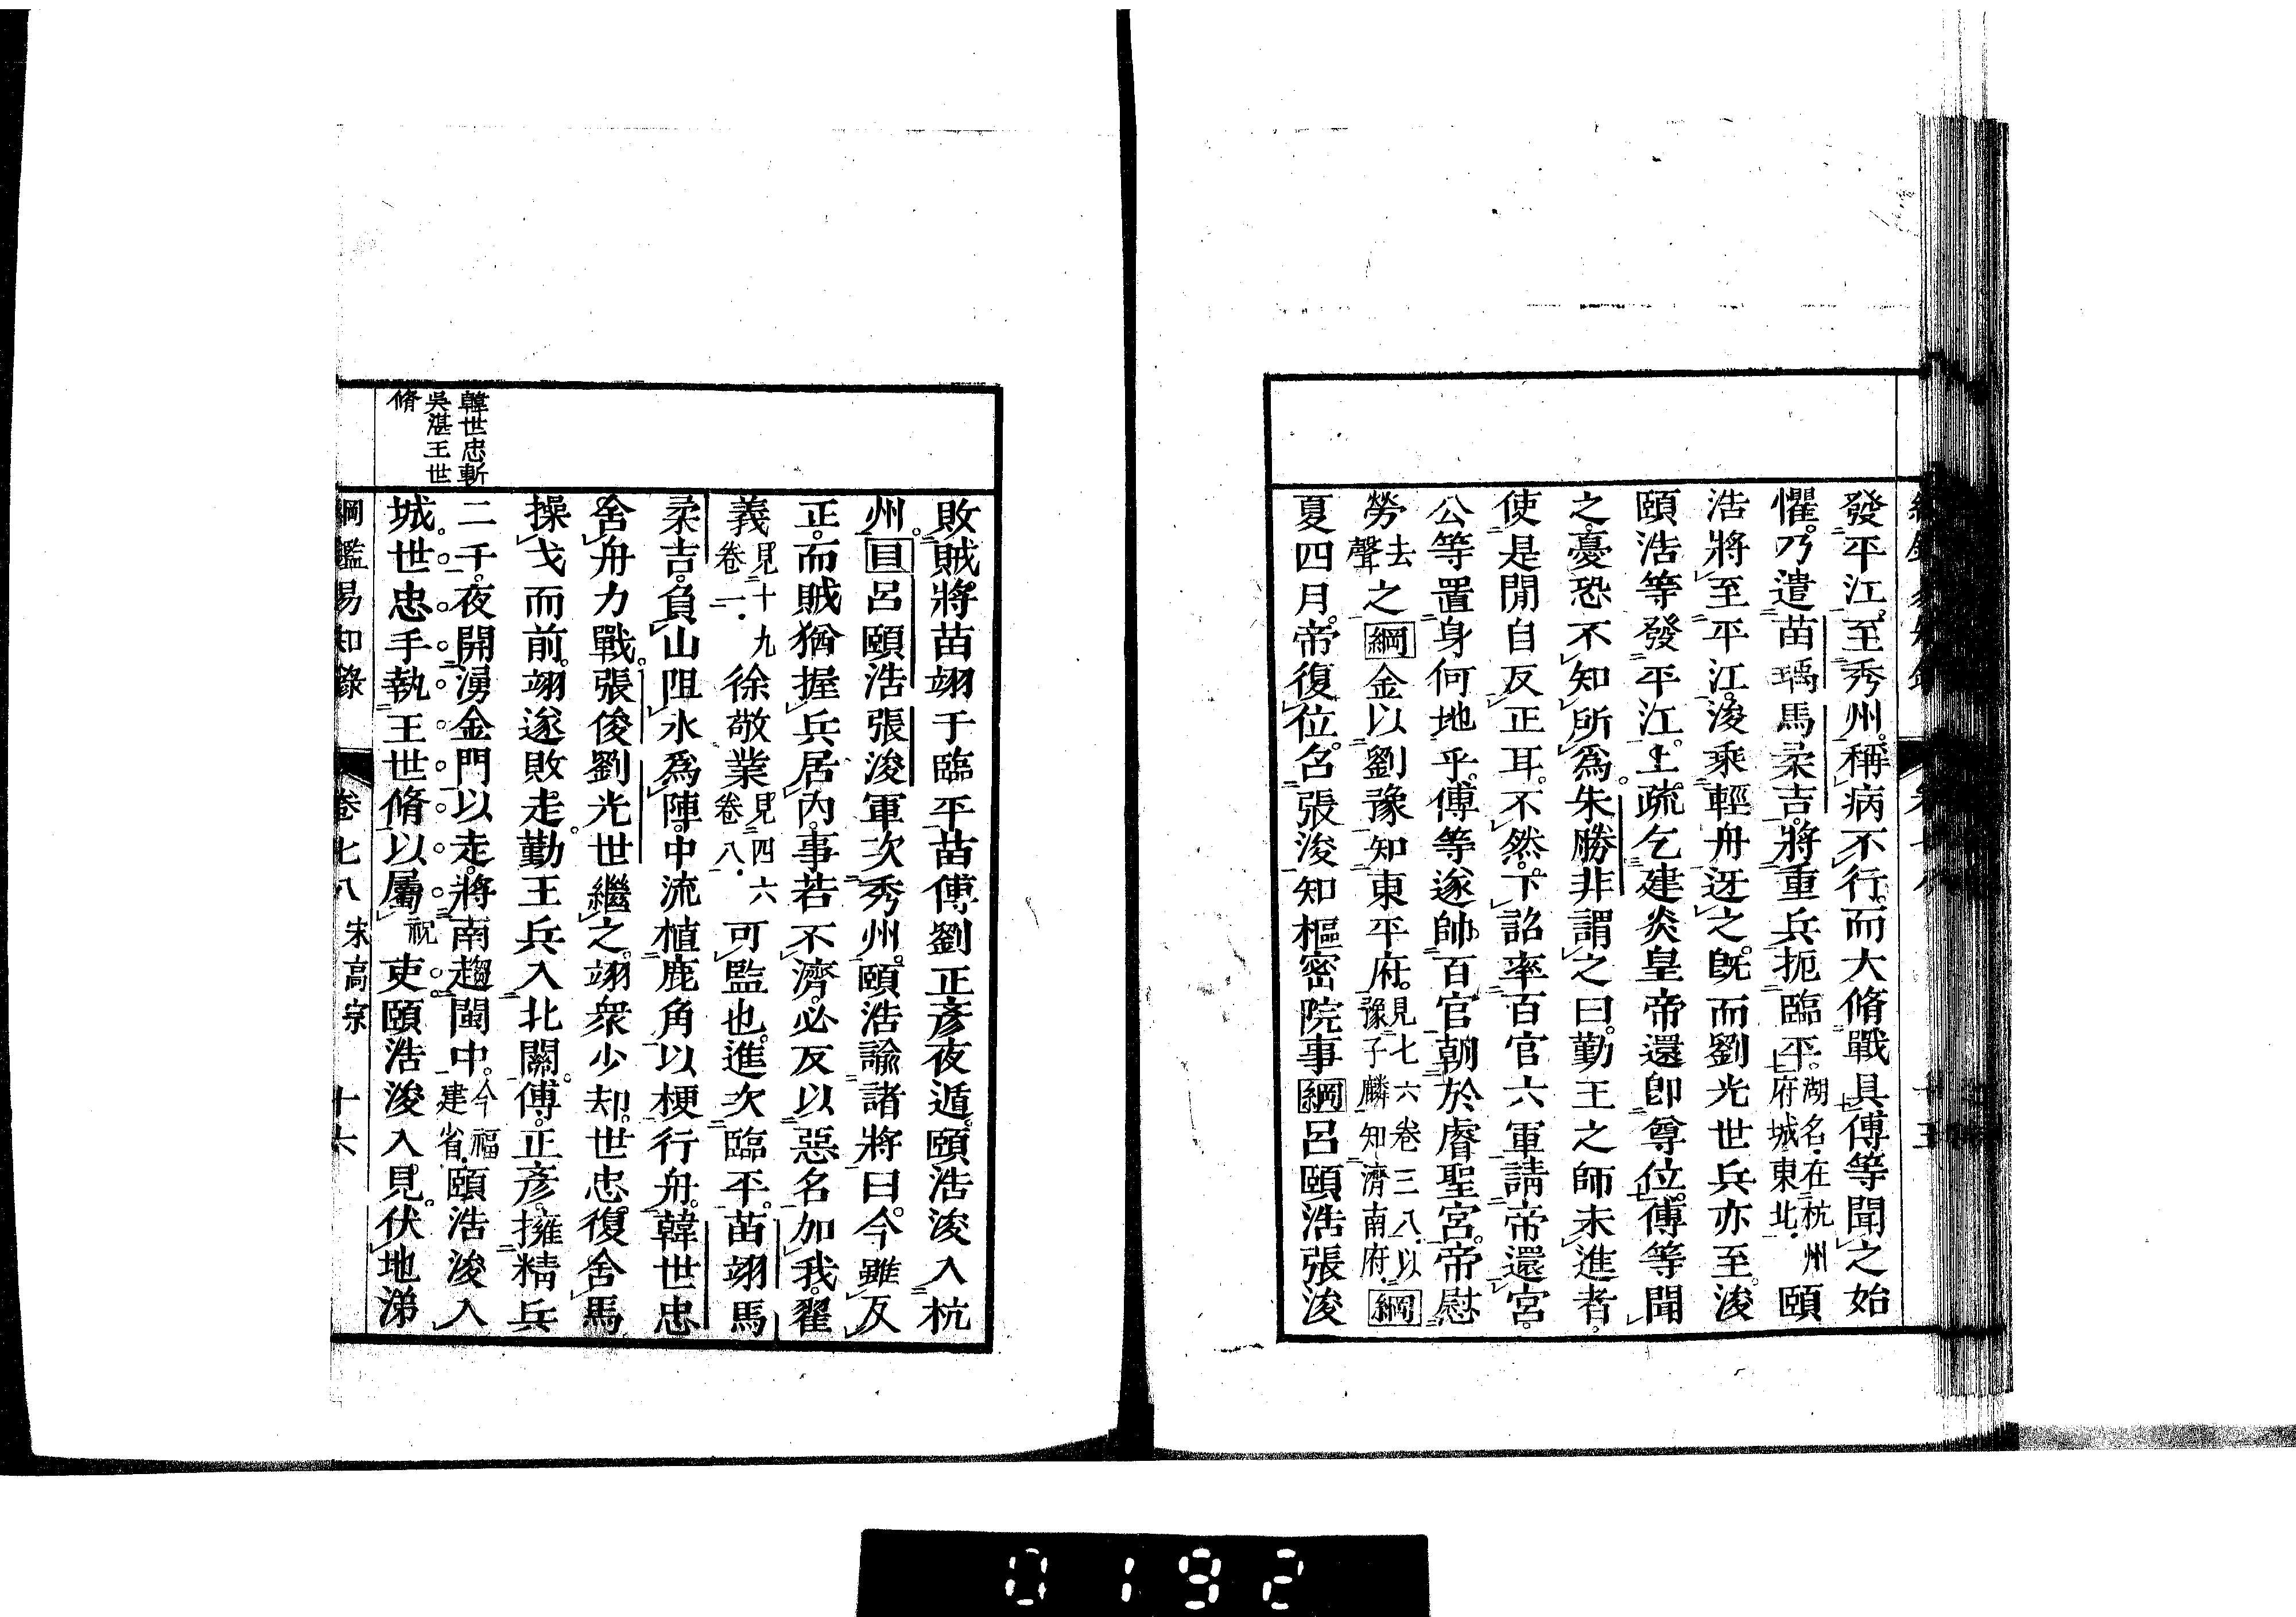 發平江至秀州稱病不行而大脩戰具傅等聞之始
懼乃遣苗瑀馬柔吉將重兵扼臨平湖名在杭州府城東北頤
浩將至平江浚乘輕舟迓之旣而劉光世兵亦至浚
頤浩等發平江上疏乞建炎皇帝還卽尊位傅等聞
之憂恐不知所爲朱勝非謂之曰勤王之師未進者
使是閒自反正耳不然下詔率百官六軍請帝還宮
公等置身何地乎傅等遂帥百官朝於睿聖宮帝慰
勞去聲之綱金以劉豫知東平府見七六卷三八以豫子麟知濟南府綱
夏四月帝復位召張浚知樞密院事綱呂頤浩張浚
敗賊將苗翊于臨平苗傅劉正彥夜遁頤浩浚入杭
州目呂頤浩張浚軍次秀州頤浩諭諸將曰今雖反
正而賊猶握兵居內事若不濟必反以惡名加我翟
義見十九卷一徐敬業見四六卷八可監也進次臨平苗翊馬
柔吉負山阻水爲陣中流植鹿角以梗行舟韓世忠
舍舟力戰張俊劉光世繼之翊衆少却世忠復舍馬
操戈而前翊遂敗走勤王兵入北關傅正彥擁精兵
二千夜開湧金門以走將南趨閩中今福建省頤浩浚入
城世忠手執王世脩以屬祝吏頤浩浚入見伏地涕
韓世忠斬
吳湛王世
脩
綱鑑易知錄 卷七八 宋高宗 十六
0192